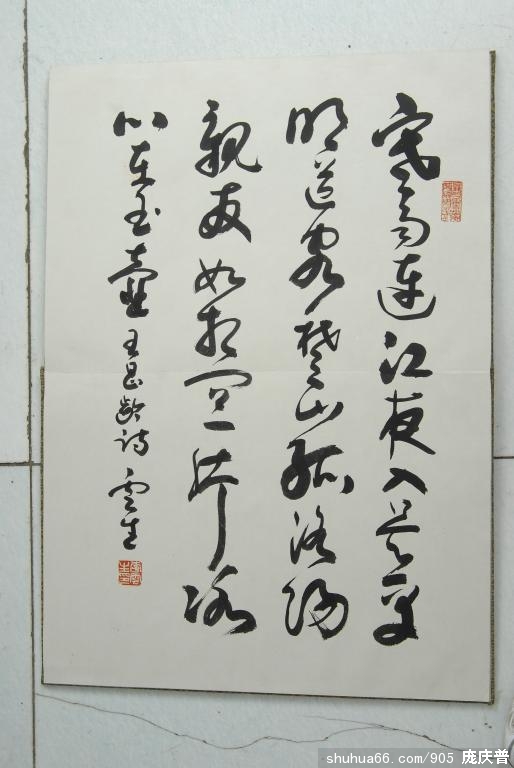 寒雨連江夜入吴平
明送客楚山孤洛陽
親友如相问一片冰
心在玉壺 王昌齡诗 雲生
shuhua66.com/905 庞庆普